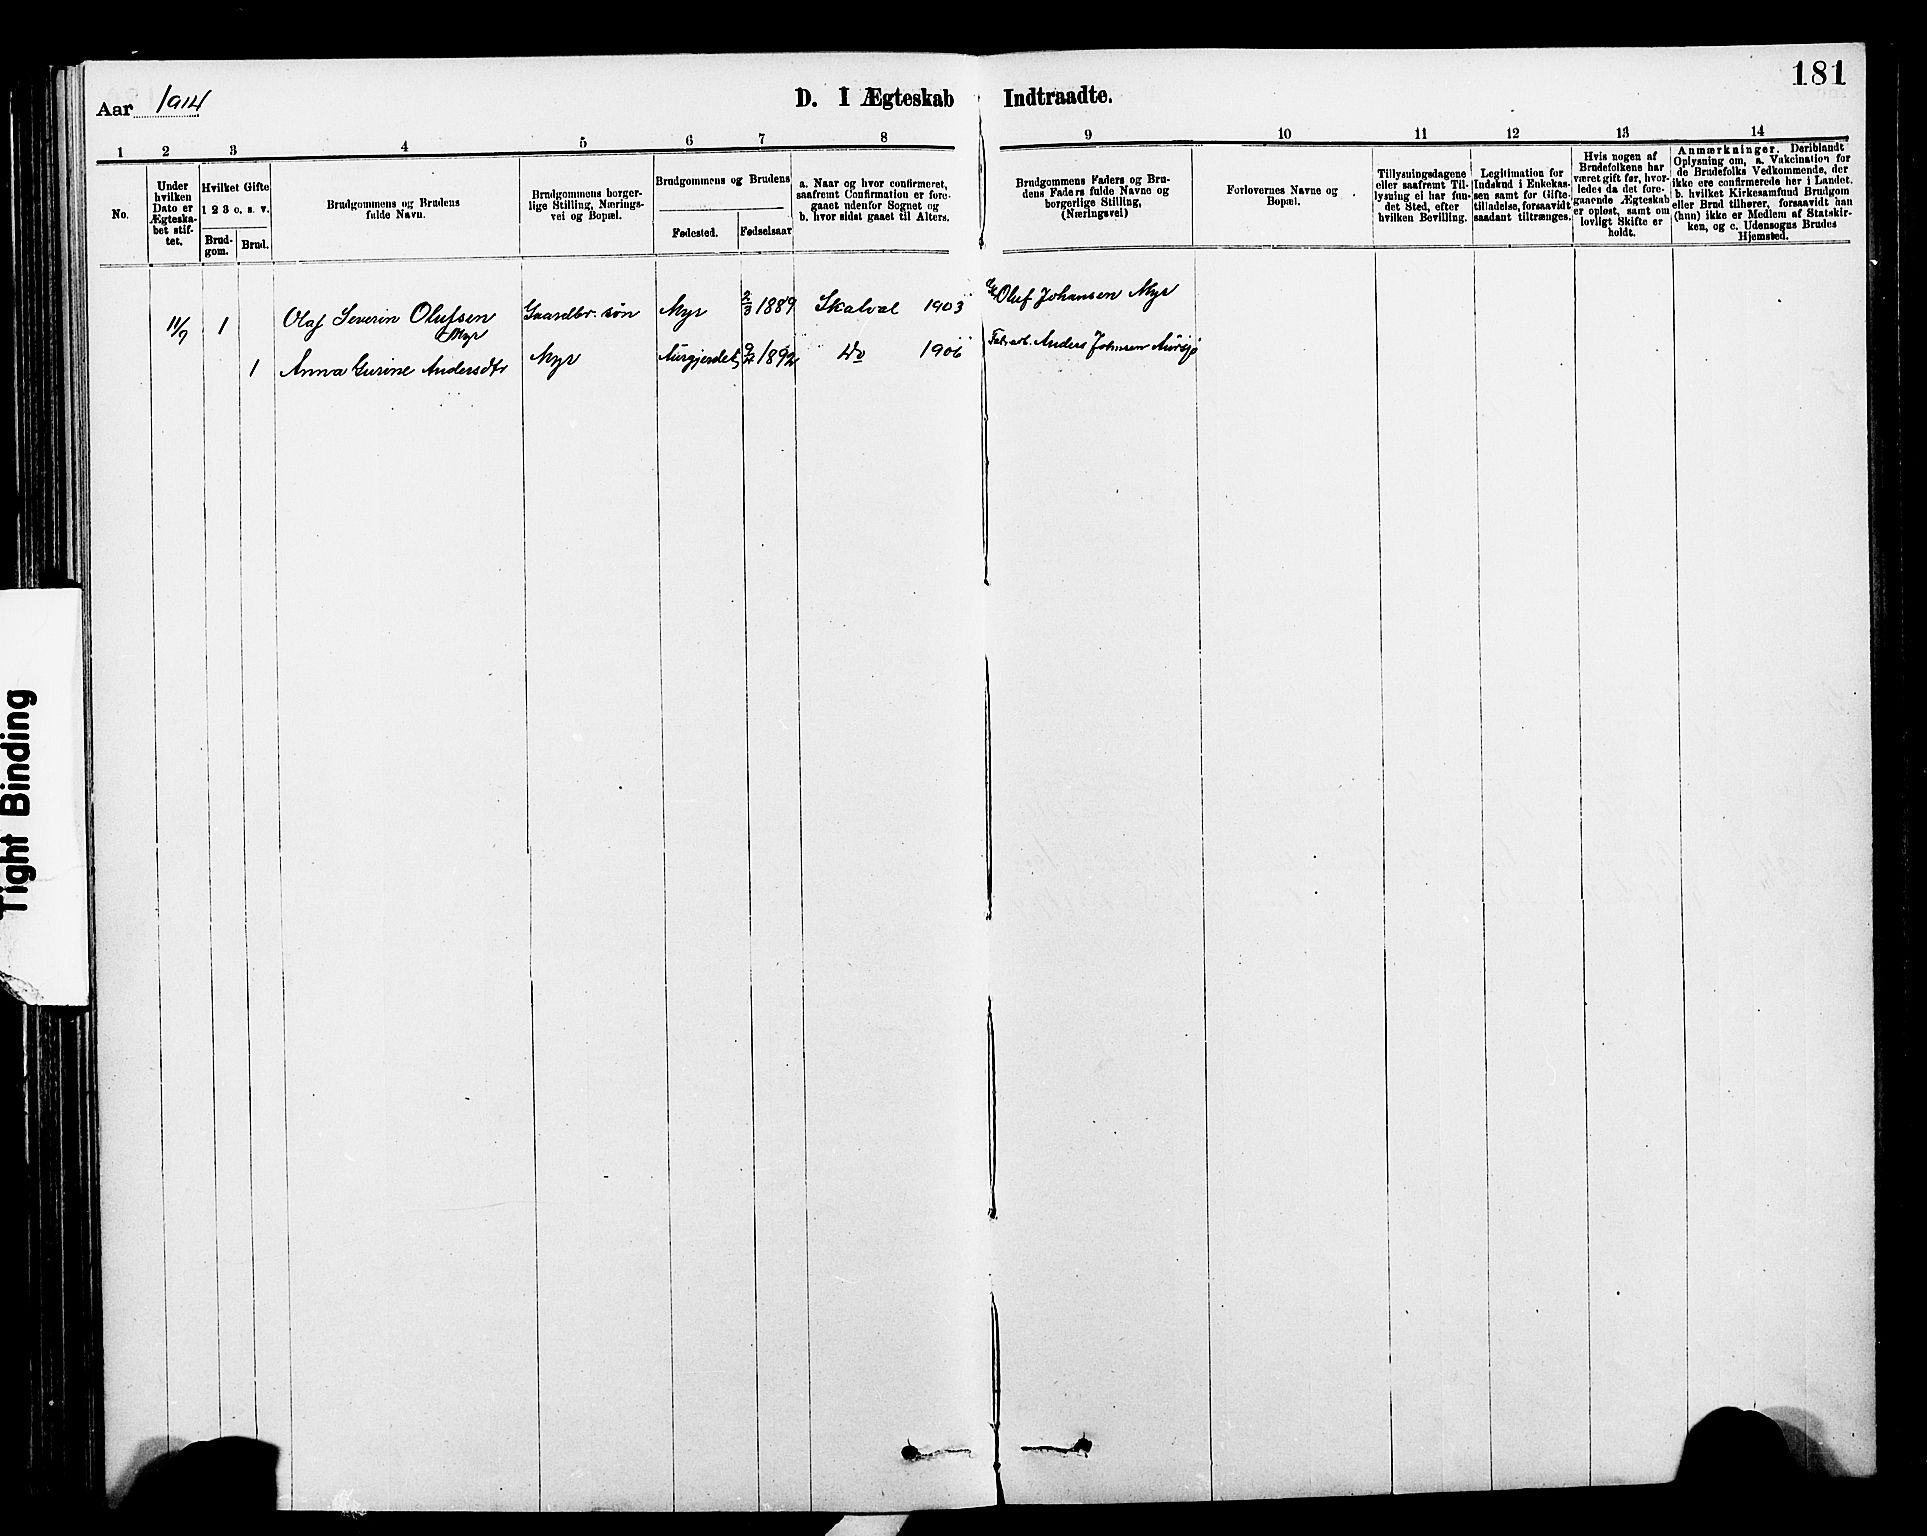 181
Aar 1914
D. I Ægteskab Indtraadte.
1 2 3 4 5 6 7 8 9 10 11 12 13 14
No.
Under
hvilken
Dato er
Ægteska-
bet stif-
tet.
Hvilket Gifte
1 2 3 o. s. v.
Brud-
gom.
Brud.
Brudgommens og Brudens
fulde Navn.
Brudgommens borger-
lige Stilling, Nærings-
vei og Bopæl.
Brudgommens og Brudens
Fødested.
Fødselsaar
a. Naar og hvor confirmeret,
saafremt Confirmation er fore-
gaaet udenfor Sognet og
b. hvor sidst gaaet til Alters.
Brudgommens Faders og Bru-
dens Faders fulde Navne og
borgerlige Stilling,
(Næringsvei)
Forlovernes Navne og
Bopæl.
Tillysningsdagene
eller saafremt Til-
lysning ei har fun-
det Sted, efter
hvilken Bevilling.
Legitimation for
Indskud i Enkekas-
sen samt for Gifte-
tilladelse, forsaavidt
saadant tiltrænges.
Hvis nogen af
Brudefolkene har
været gift før, hvor-
ledes da det fore-
gaaende Ægteskab
er opløst, samt om
lovligt Skifte er
holdt.
Anmærkninger. Deriblandt
Oplysning om, a. Vakcination for
de Brudefolks Vedkommende, der
ikke ere confirmerede her i Landet.
b. hvilket Kirkesamfund Brudgom
eller Brud tilhører, forsaavidt han
(hun) ikke er Medlem af Statskir-
ken, og c. Udensogns Brudes
Hjemsted.
11/7 1 Olaf Severin Olufsen Gaardbr. søn Myr 2/3 1889 Skatval 1903 Oluf Johansen Myr
Myr
1 Anna Gurine Andersdtr Myr Aurgjerdet 1892 Do 1906 Anders Johnsen
Tight Binding